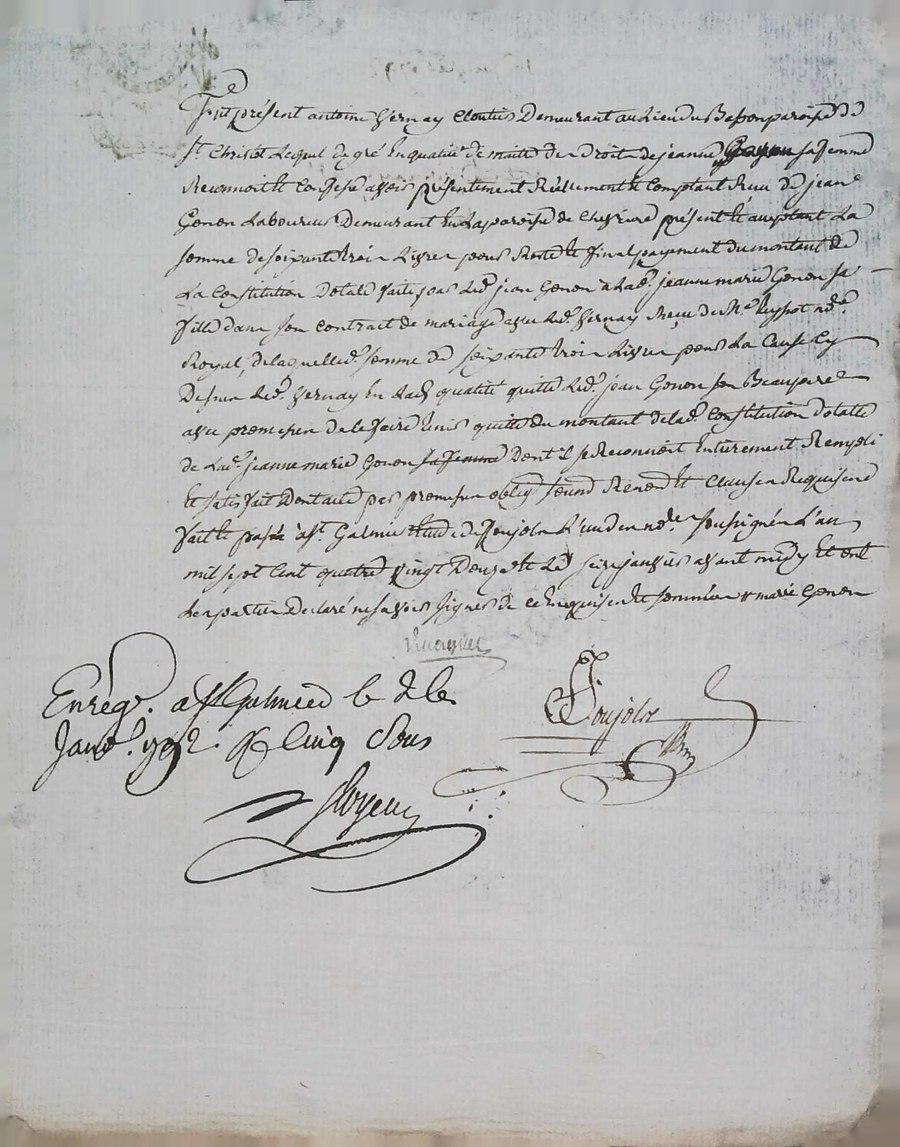 Fut présent antoine Vernay Cloutier Demeurant au Lieu du paroisse de
St Christot Lequel de gré En qualité de maître de Droits de jeanne sa femme
Reconnoit et Confesse avoir présentement Réelement et Comptant Reçu de jean
Genon Laboureur Demeurant En La paroisse de Chevrieres présent et acceptant La
somme de soixante trois Livres pour Reste et final payement du montant de
La Constitution Dotale faite par Led. jean Genon a Lad. jeanne marie Genon sa
fille dans son Contrat de mariage avec Led. Vernay Reçu de Me nore
Royal, de laquelle d. somme de soixante trois Livres pour La Cause Cy
Dessus Led. Vernay En Lad. qualité quitte Led. jean Genon son Beaupere
avec promesse de le faire tenir quitte du montant de lad. Constitution dotalle
de Lad. jeanne marie Genon sa femme Dont il se Reconnoit Entierement Rempli
Et satisfait Dont acte par promesse oblig. soum. Renon. et Clauses Requises
fait et passé a St. Galmier Etude de Ponjolx L'un des nores soussignés L'an
mil sept Cent quatre vingt Douze et Le seize janvier avant midy Et ont
Les parties Declaré ne savoir signer de ce Enquises et sommées marie Genon
Enregr. a St Galmier le 26
Janvr. 1792. R Cinq Sous
Ponjolx